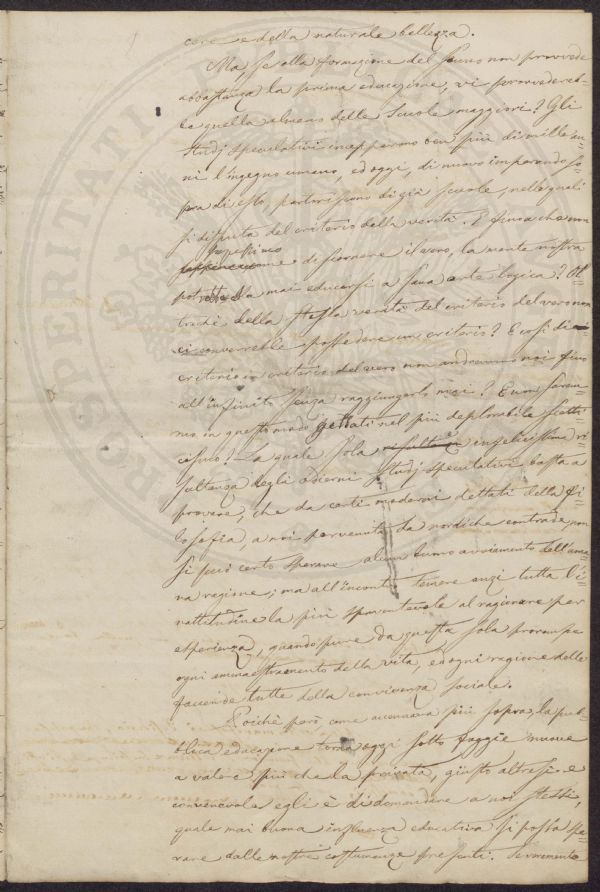 cere e della naturale bellezza.
Ma, se alla formazione del senno non provvede
abbastanza la prima educazione, vi provvedereb=
be quella almeno delle Scuole maggiori? Gli
studj speculativi incepparono ben più di mille an=
ni l'ingegno umano, ed oggi, di nuovo imperando so=
pra di esso, partoriscono di già scuole, nelle quali
si disputa del criterio della verità. E finora che non
di scernere il vero, la mente nostra
potrebbe mai educarsi a sana arte logica? Ol=
trachè della stessa verità del criterio del vero non
ci converrebbe possedere un criterio? E così di
criterio in criterio del vero non andremmo noi fino
all'infinito senza raggiungerlo mai? E non sarem=
mo in questo modo gettati nel più deplorabile scetti=
cismo? La quale sola infelicissima ri=
sultanza degli odierni studj speculativi basta a
provare, che da certi moderni dettati della fi=
losofia, a noi pervenuti da nordiche contrade, non
si può certo sperare alcun buono avviamento dell'uma=
na ragione; ma all'incontro temere anzi tutta l'i=
nattitudine la più spaventevole al ragionare per
esperienza, quando pure da questa sola prorompe
ogni ammaestramento della vita, ed ogni ragione delle
faccende tutte della convivenza sociale.
Poichè però come accennava più sopra, la pub=
blica educazione torna oggi sotto foggie nuove
a valere più che la privata, giusto altresì e
convenevole egli è di domandare a noi stessi,
quale mai buona influenza educativa si possa spe=
rare dalle nostre costumanze presenti. Seriamente